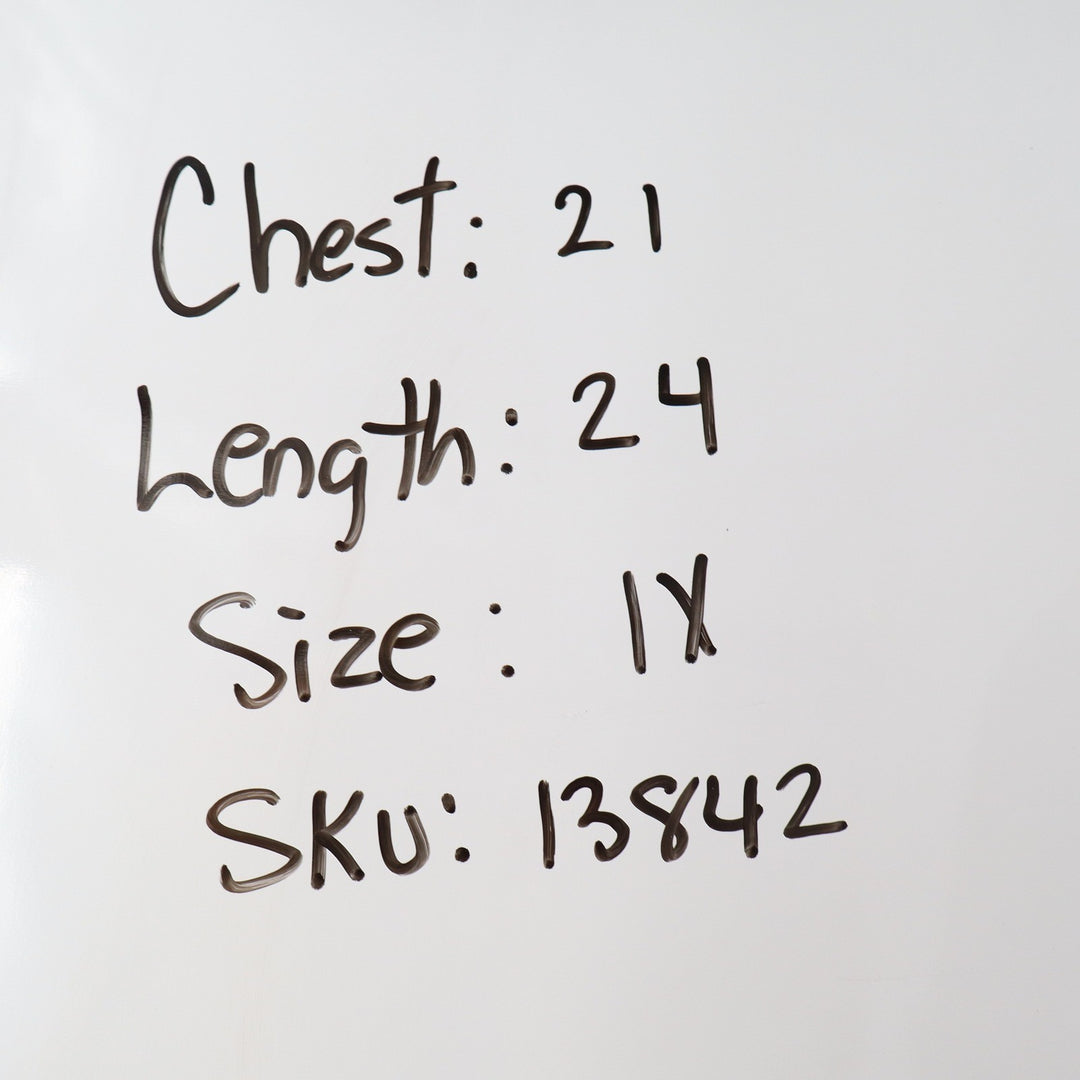 Chest: 21
Length: 24
Size: 1X
SKU: 13842